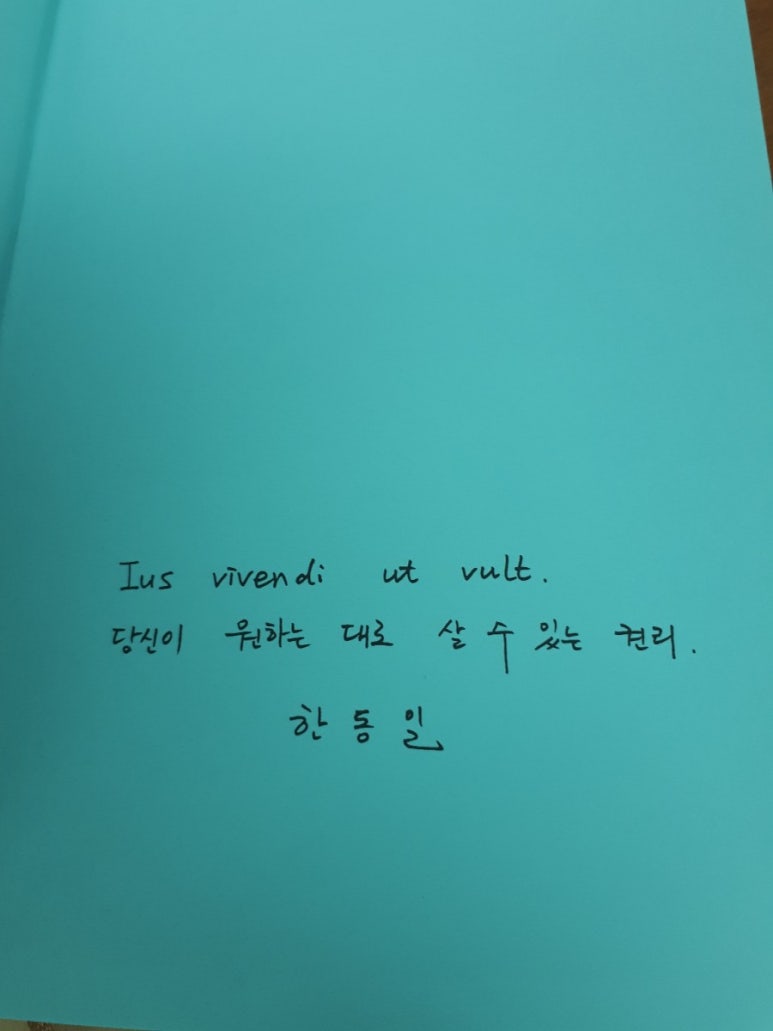 Ius vivendi ut vult.
당신이 원하는 대로 살 수 있는 권리.
한동일